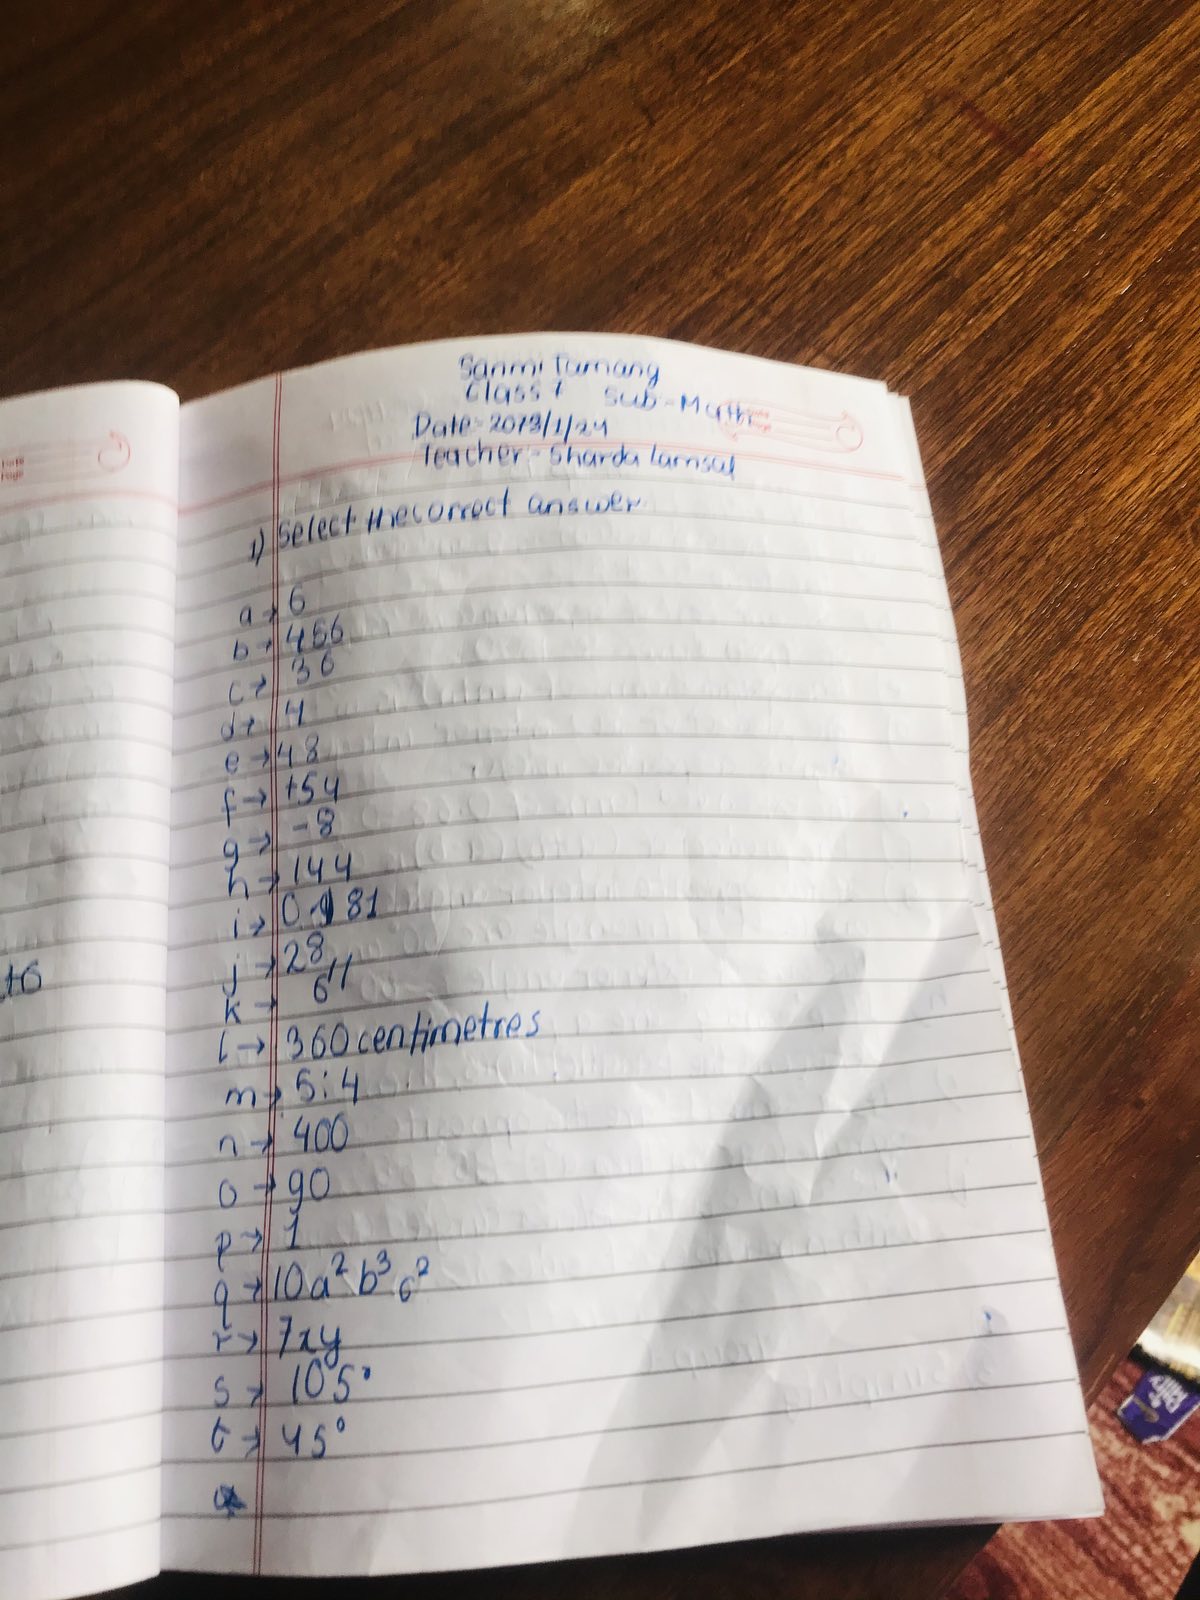 Sanmi Tamang
Class 7 Sub-Math
Date-2079/1/24
Teacher-Sharda Lamsal
1) Select the correct answer.
a → 6
b → 456
c → 36
d → 4
e → 48
f → +54
g → -8
h → 144
i → 0.81
j → 28
k → 6/11
l → 360 centimetres
m → 5:4
n → 400
o → 90
p → 1
q → 10a² b³ c²
r → 7xy
s → 105°
t → 45°
t6